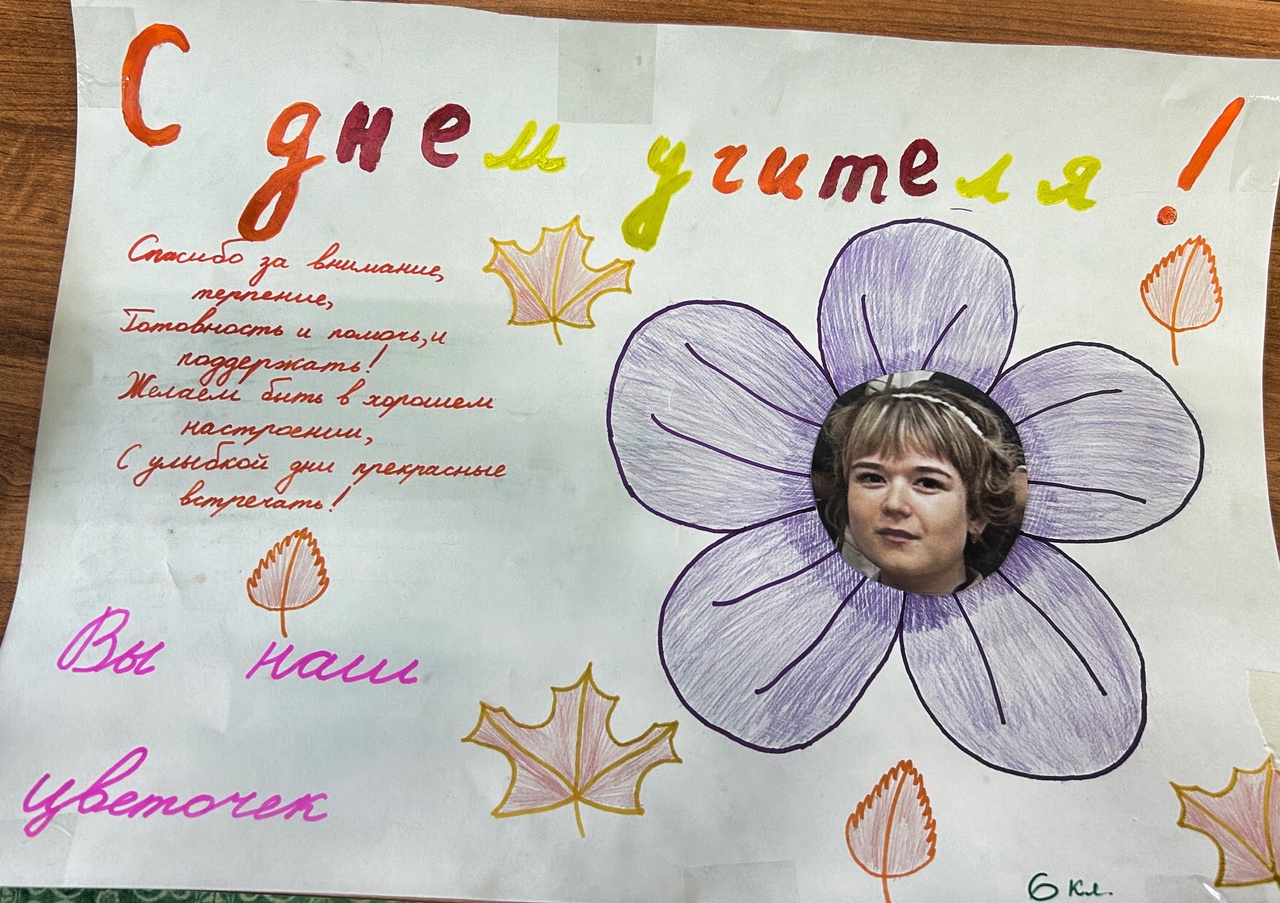 С днем учителя!
Спасибо за внимание,
терпение,
Готовность и помочь, и
поддержать!
Желаем быть в хорошем
настроении,
С улыбкой дни прекрасные
встречать!
Вы наш
цветочек
6 кл.